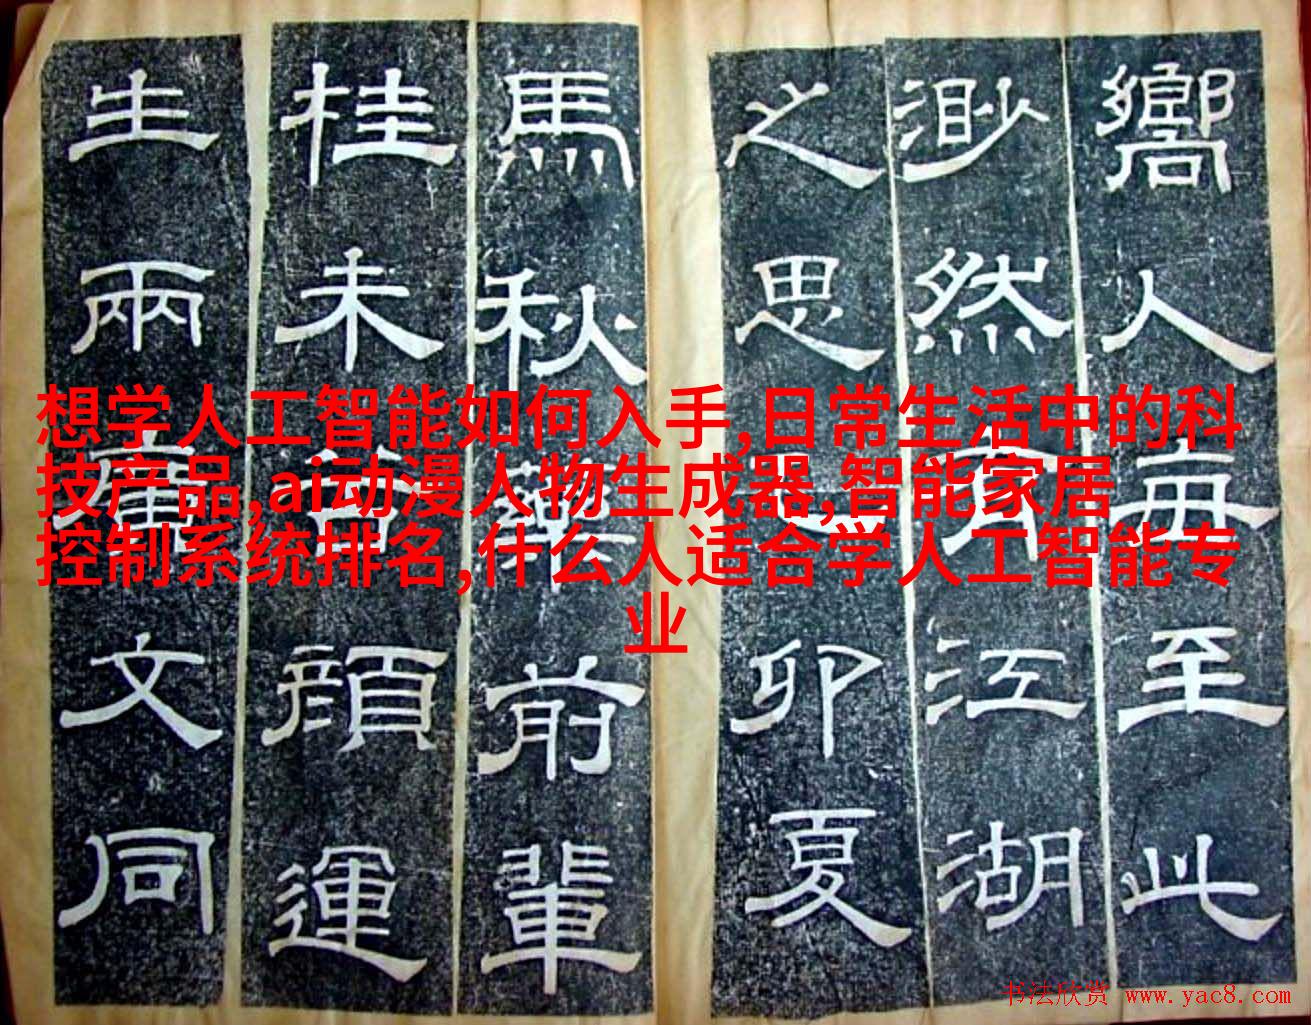 嚮人再至此
渺然有江湖
之思乙卯夏
馬秋藥前輩
桂未谷顏運
生兩廣文同
想学人工智能如何入手,日常生活中的科
技产品,ai动漫人物生成器,智能家居
控制系统排名,什么人适合学人工智能专
业
书法欣赏 www.yac8.com